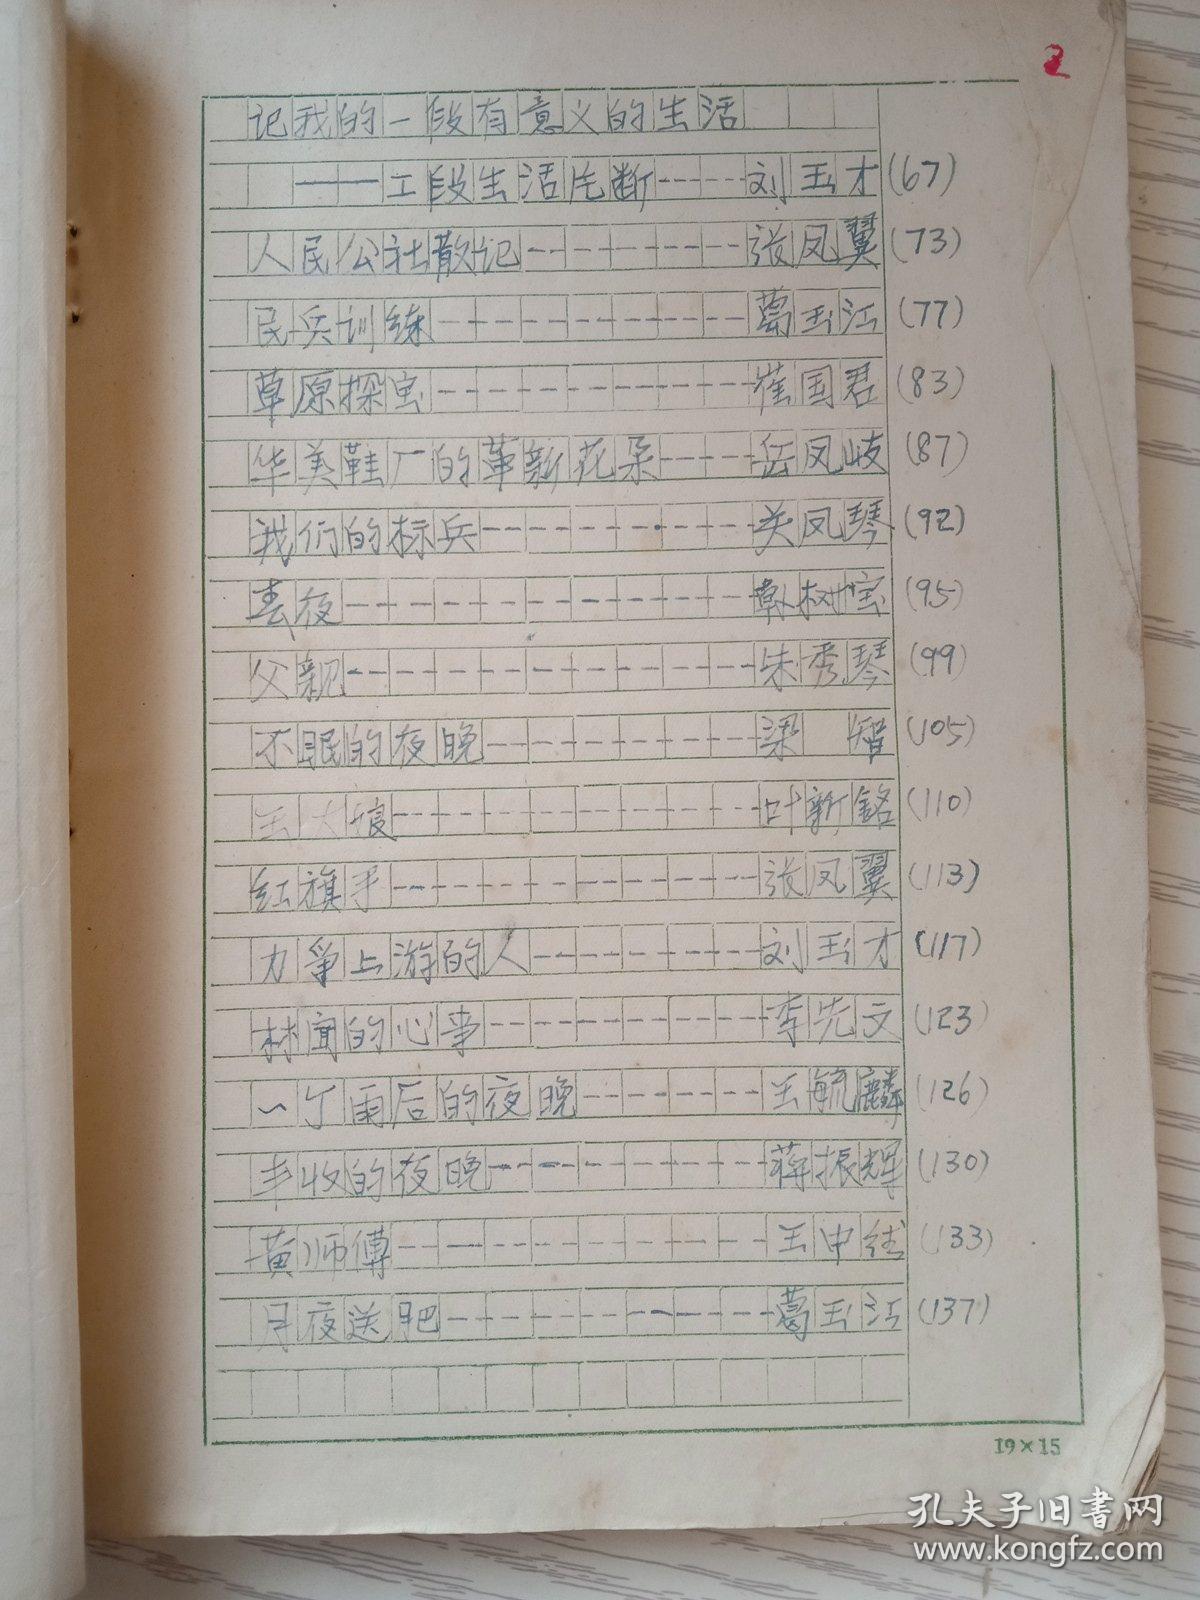 2
记我的一段有意义的生活
——工段生活片断-----刘玉才(67)
人民公社散记--------张凤翼(73)
民兵训练----------葛玉江(77)
草原探宝----------崔国君(83)
华美鞋厂的革新花朵-----岳凤岐(87)
我们的标兵---------关凤琴(92)
春夜------------韩树宝(95)
父亲------------朱秀琴(99)
不眠的夜晚---------梁 智(105)
王大娘-----------叶新铭(110)
红旗手-----------张凤翼(113)
力争上游的人--------刘玉才(117)
林闻的心事---------李先文(123)
一个雨后的夜晚-------王毓麟(126)
丰收的夜晚---------蒋振辉(130)
黄师傅-----------王中(133)
月夜送肥----------葛玉江(137)
19×15
孔夫子旧书网
www.kongfz.com